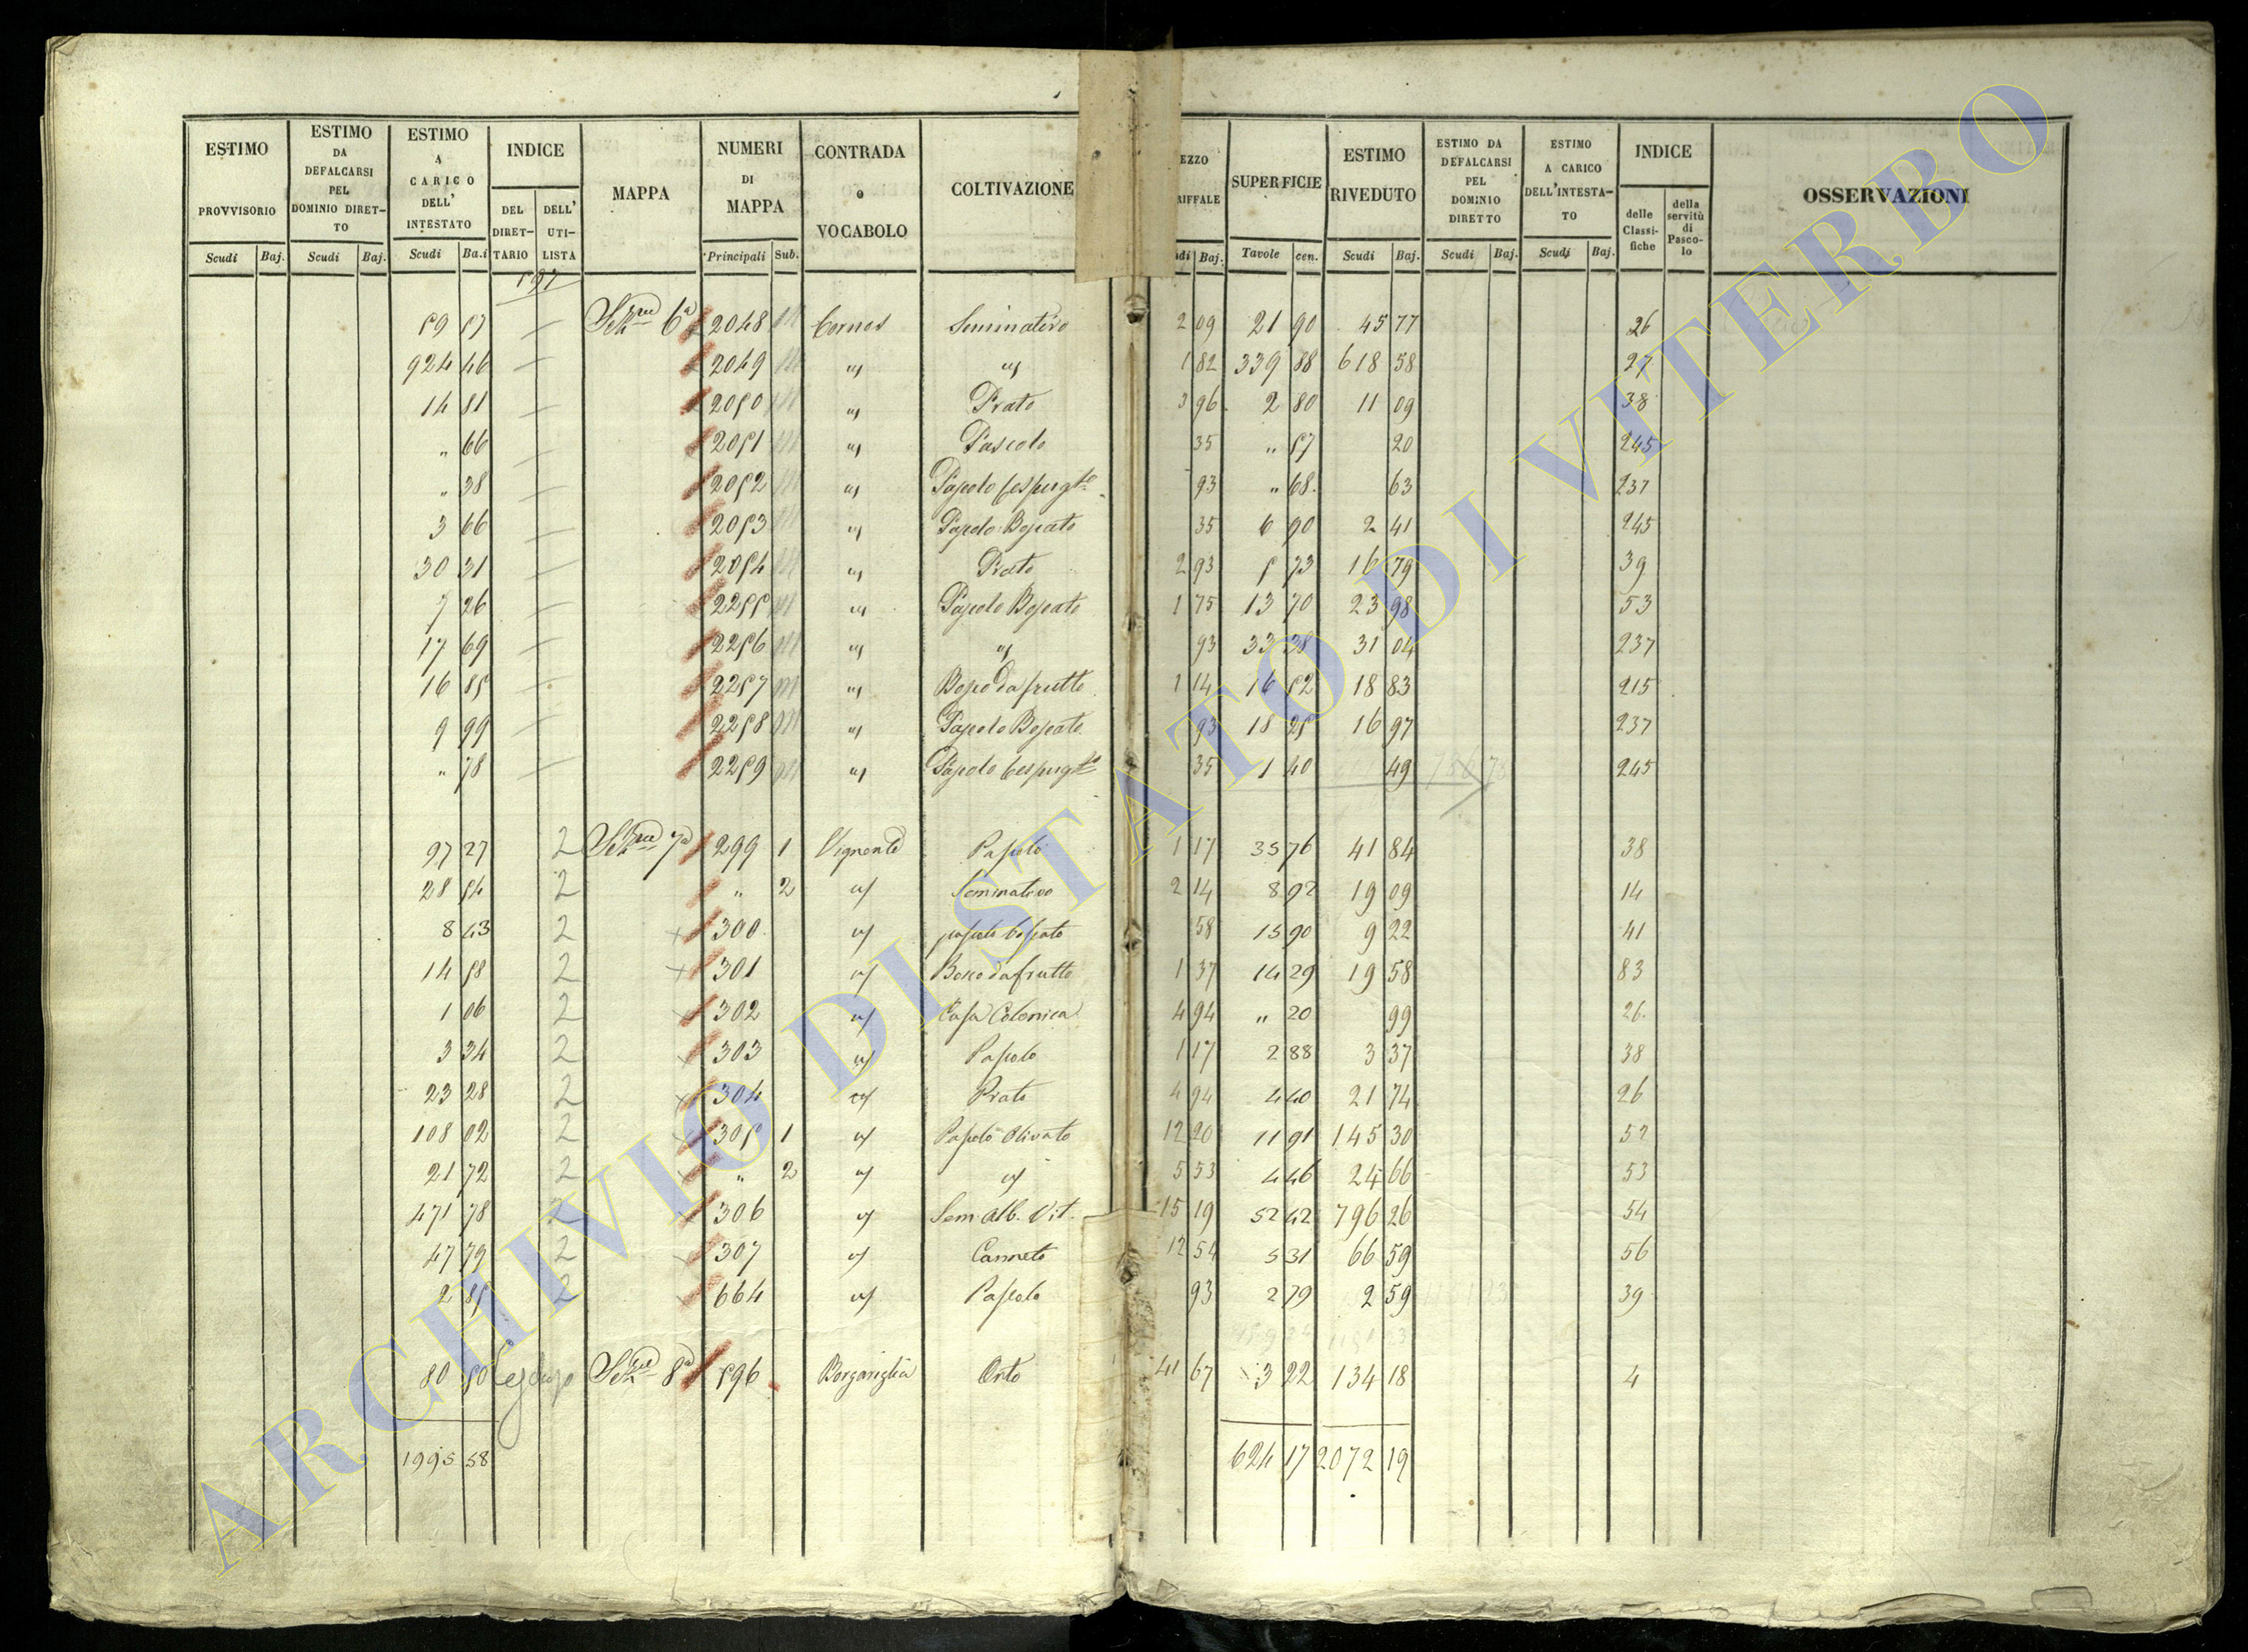 ESTIMO PROVVISORIO Scudi Baj.
ESTIMO DA DEFALCARSI PEL DOMINIO DIRET- TO Scudi Baj.
ESTIMO A CARICO DELL' INTESTATO Scudi Ba.i
INDICE DEL DIRET- TARIO DELL' UTI- LISTA
MAPPA
NUMERI DI MAPPA Principali Sub.
CONTRADA o VOCABOLO
COLTIVAZIONE
EZZO RIFFALE di Baj.
SUPERFICIE Tavole cen.
ESTIMO RIVEDUTO Scudi Baj.
ESTIMO DA DEFALCARSI PEL DOMINIO DIRETTO Scudi Baj.
ESTIMO A CARICO DELL'INTESTA- TO Scudi Baj.
INDICE delle Classi- fiche della servitù di Pasco- lo
OSSERVAZIONI
597
59 57 — 6a 2048 Seminativo 2 09 21 90 45 77 26
924 46 — 2049 " " 1 82 339 88 618 58 27
14 81 — 2050 " Prato 3 96 2 80 11 09 38
" 66 — 2051 " Pascolo 35 " 57 20 245
" 38 — 2052 " Pascolo cespugto 93 " 68 63 237
3 66 — 2053 " Pascolo Boscato 35 6 90 2 41 245
30 31 — 2054 " Prato 2 93 5 73 16 79 39
7 26 — 2255 " Pascolo Boscato 1 75 13 70 23 98 53
17 69 — 2256 " " 93 33 38 31 04 237
16 85 — 2257 " Bosco da frutto 1 14 16 52 18 83 215
9 99 — 2258 " Pascolo Boscato 93 18 25 16 97 237
" 78 — 2259 " Pascolo cespugto 35 1 40 49 245
27 27 2 7a 299 1 Pascolo 1 17 35 76 41 84 38
28 54 2 " 2 " Seminativo 2 14 8 92 19 09 14
8 43 2 300 " pascolo boscato 58 15 90 9 22 41
14 58 2 301 " Bosco da frutto 1 37 14 29 19 58 83
1 06 2 302 " Casa Colonica 4 94 " 20 99 26
3 34 2 303 " Pascolo 1 17 2 88 3 37 38
23 28 2 304 " Prato 4 94 4 40 21 74 26
108 02 2 305 1 " Pascolo Olivato 12 20 11 91 145 30 52
21 72 2 " 2 " " 5 53 4 46 24 66 53
471 78 2 306 " Sem. Alb. Vit. 15 19 52 42 796 26 54
47 79 2 307 " Canneto 12 54 5 31 66 59 56
2 85 2 664 " Pascolo 93 2 79 2 59 39
80 50 8a 596 Orto 41 67 3 22 134 18 4
1995 58 624 17 2072 19
ARCHIVIO DI STATO DI VITERBO